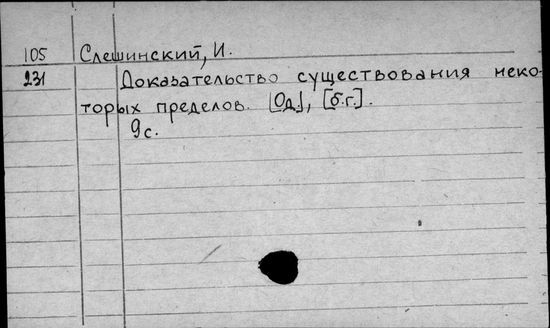 105 Слешинский, И.
231 Доказательство существования неко-
торых пределов. [Од], [б.г.].
9с.